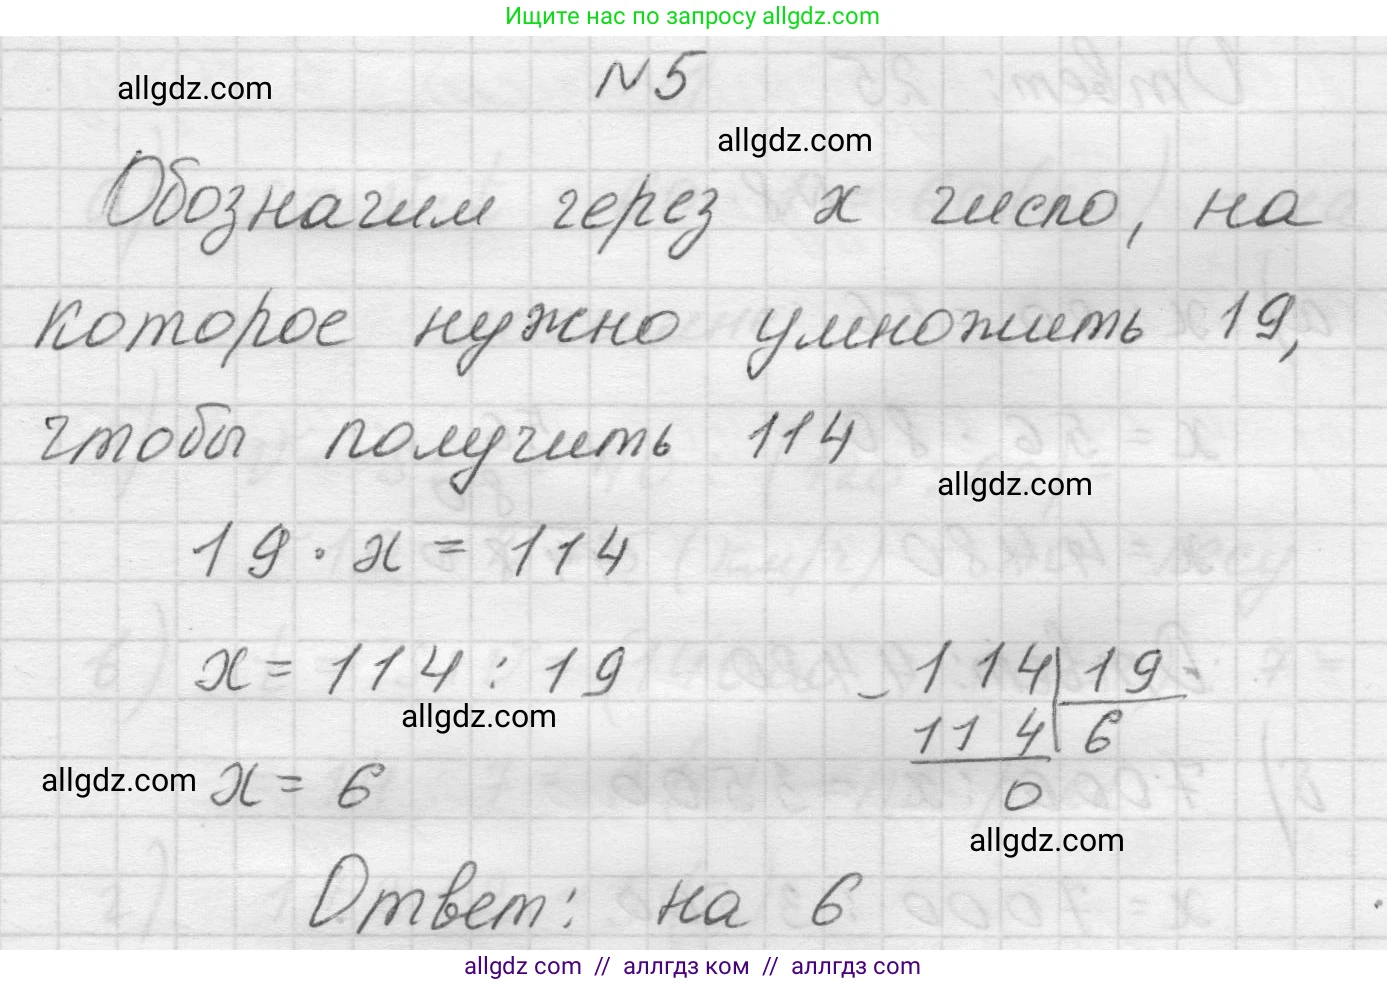 Ищите нас по запросу allgdz.com
allgdz.com
№5
allgdz.com
Обозначим через x число, на
которое нужно умножить 19,
чтобы получить 114
allgdz.com
19 · x = 114
x = 114 : 19
- 114 | 19
allgdz.com
114 | 6
allgdz.com
x = 6
0
allgdz.com
Ответ: на 6
allgdz com // аллгдз ком // allgdz com